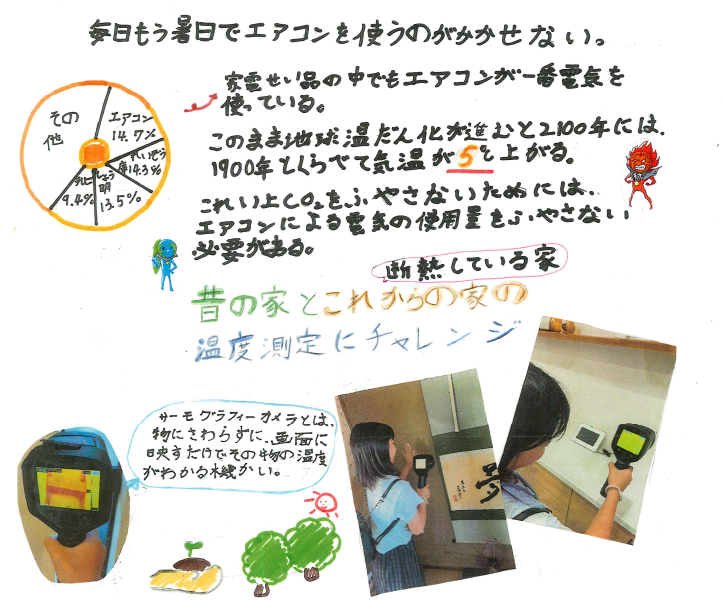 毎日もう暑日でエアコンを使うのがかかせない。
家電せい品の中でもエアコンが一番電気を
使っている。
その
他
エアコン
14.7%
れいぞう
庫14.3%
しょう
明
13.5%
テレビ
9.4%
このまま地球温だん化が進むと2100年には、
1900年とくらべて気温が5℃上がる。
これい上CO₂をふやさないためには、
エアコンによる電気の使用量をふやさない
必要がある。
断熱している家
昔の家とこれからの家の
温度測定にチャレンジ
サーモグラフィーカメラとは、
物にさわらずに、画面に
映すだけでその物の温度
がわかる木幾かい。
夢